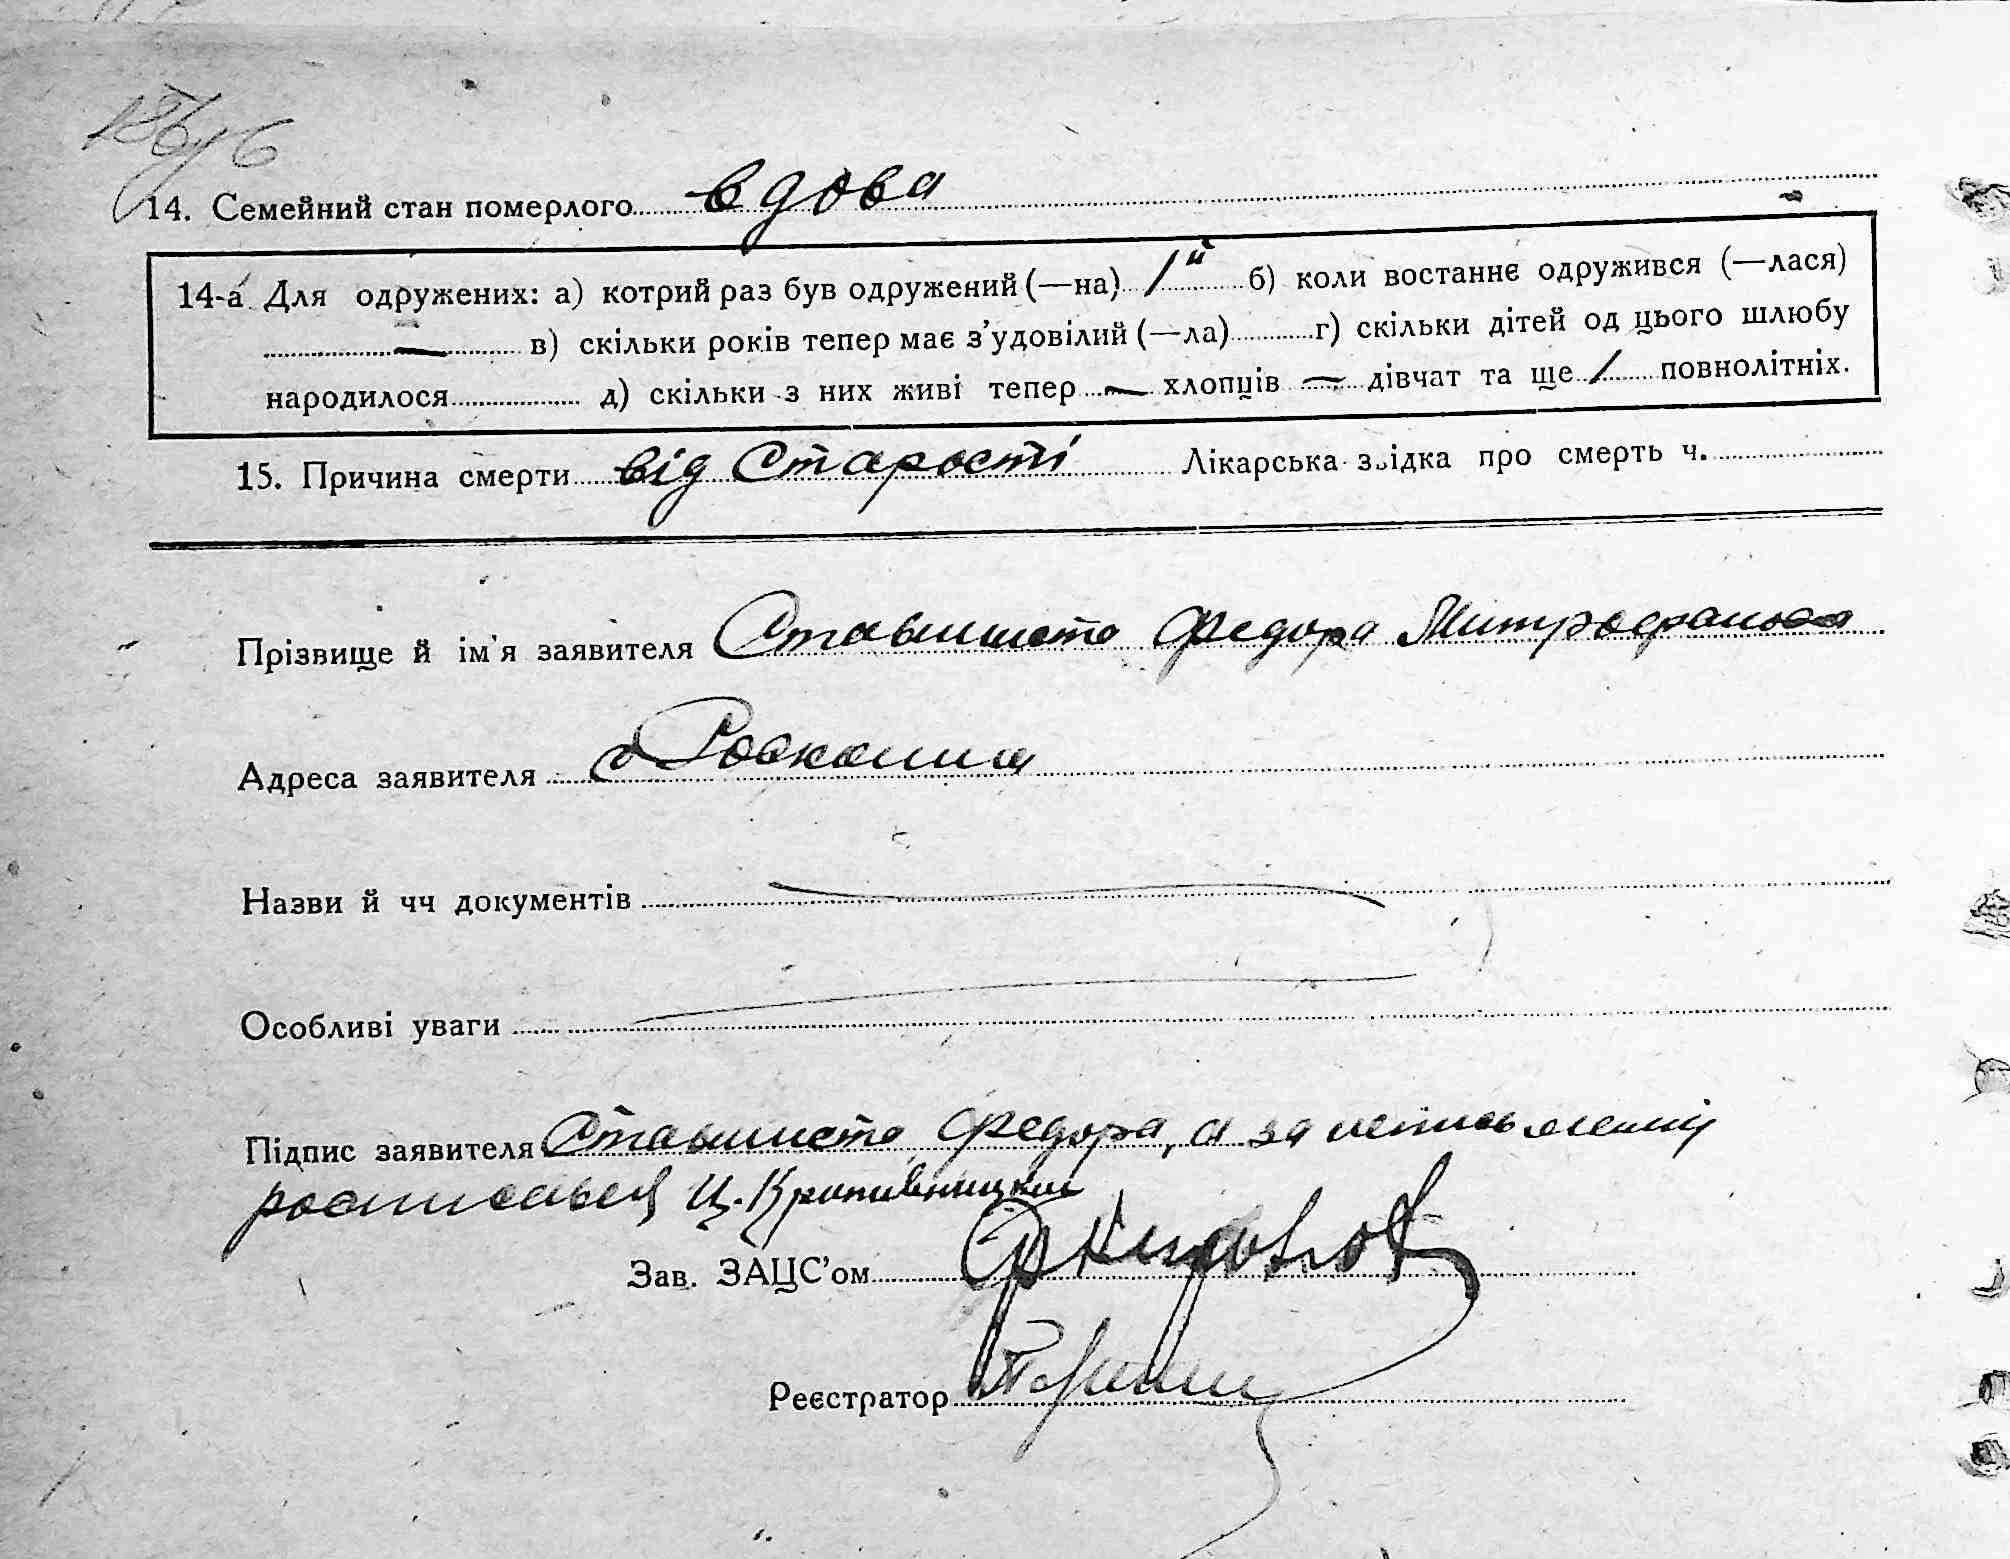 14. Семейний стан померлого вдова
14-а Для одружених: а) котрий раз був одружений (—на) 1й б) коли востаннє одружився (—лася)
— в) скільки років тепер має з’удовілий (—ла) г) скільки дітей од цього шлюбу
народилося д) скільки з них живі тепер — хлопців — дівчат та ще 1 повнолітніх.
15. Причина смерти від Старості Лікарська звідка про смерть ч.
Прізвище й ім’я заявителя Ставишста Федора Митрофанова
Адреса заявителя с Роскошна
Назви й чч документів —
Особливі уваги —
Підпис заявителя Ставишста Федора, а за
росписався Ц. Кропивницкий
Зав. ЗАЦС’ом
Реєстратор